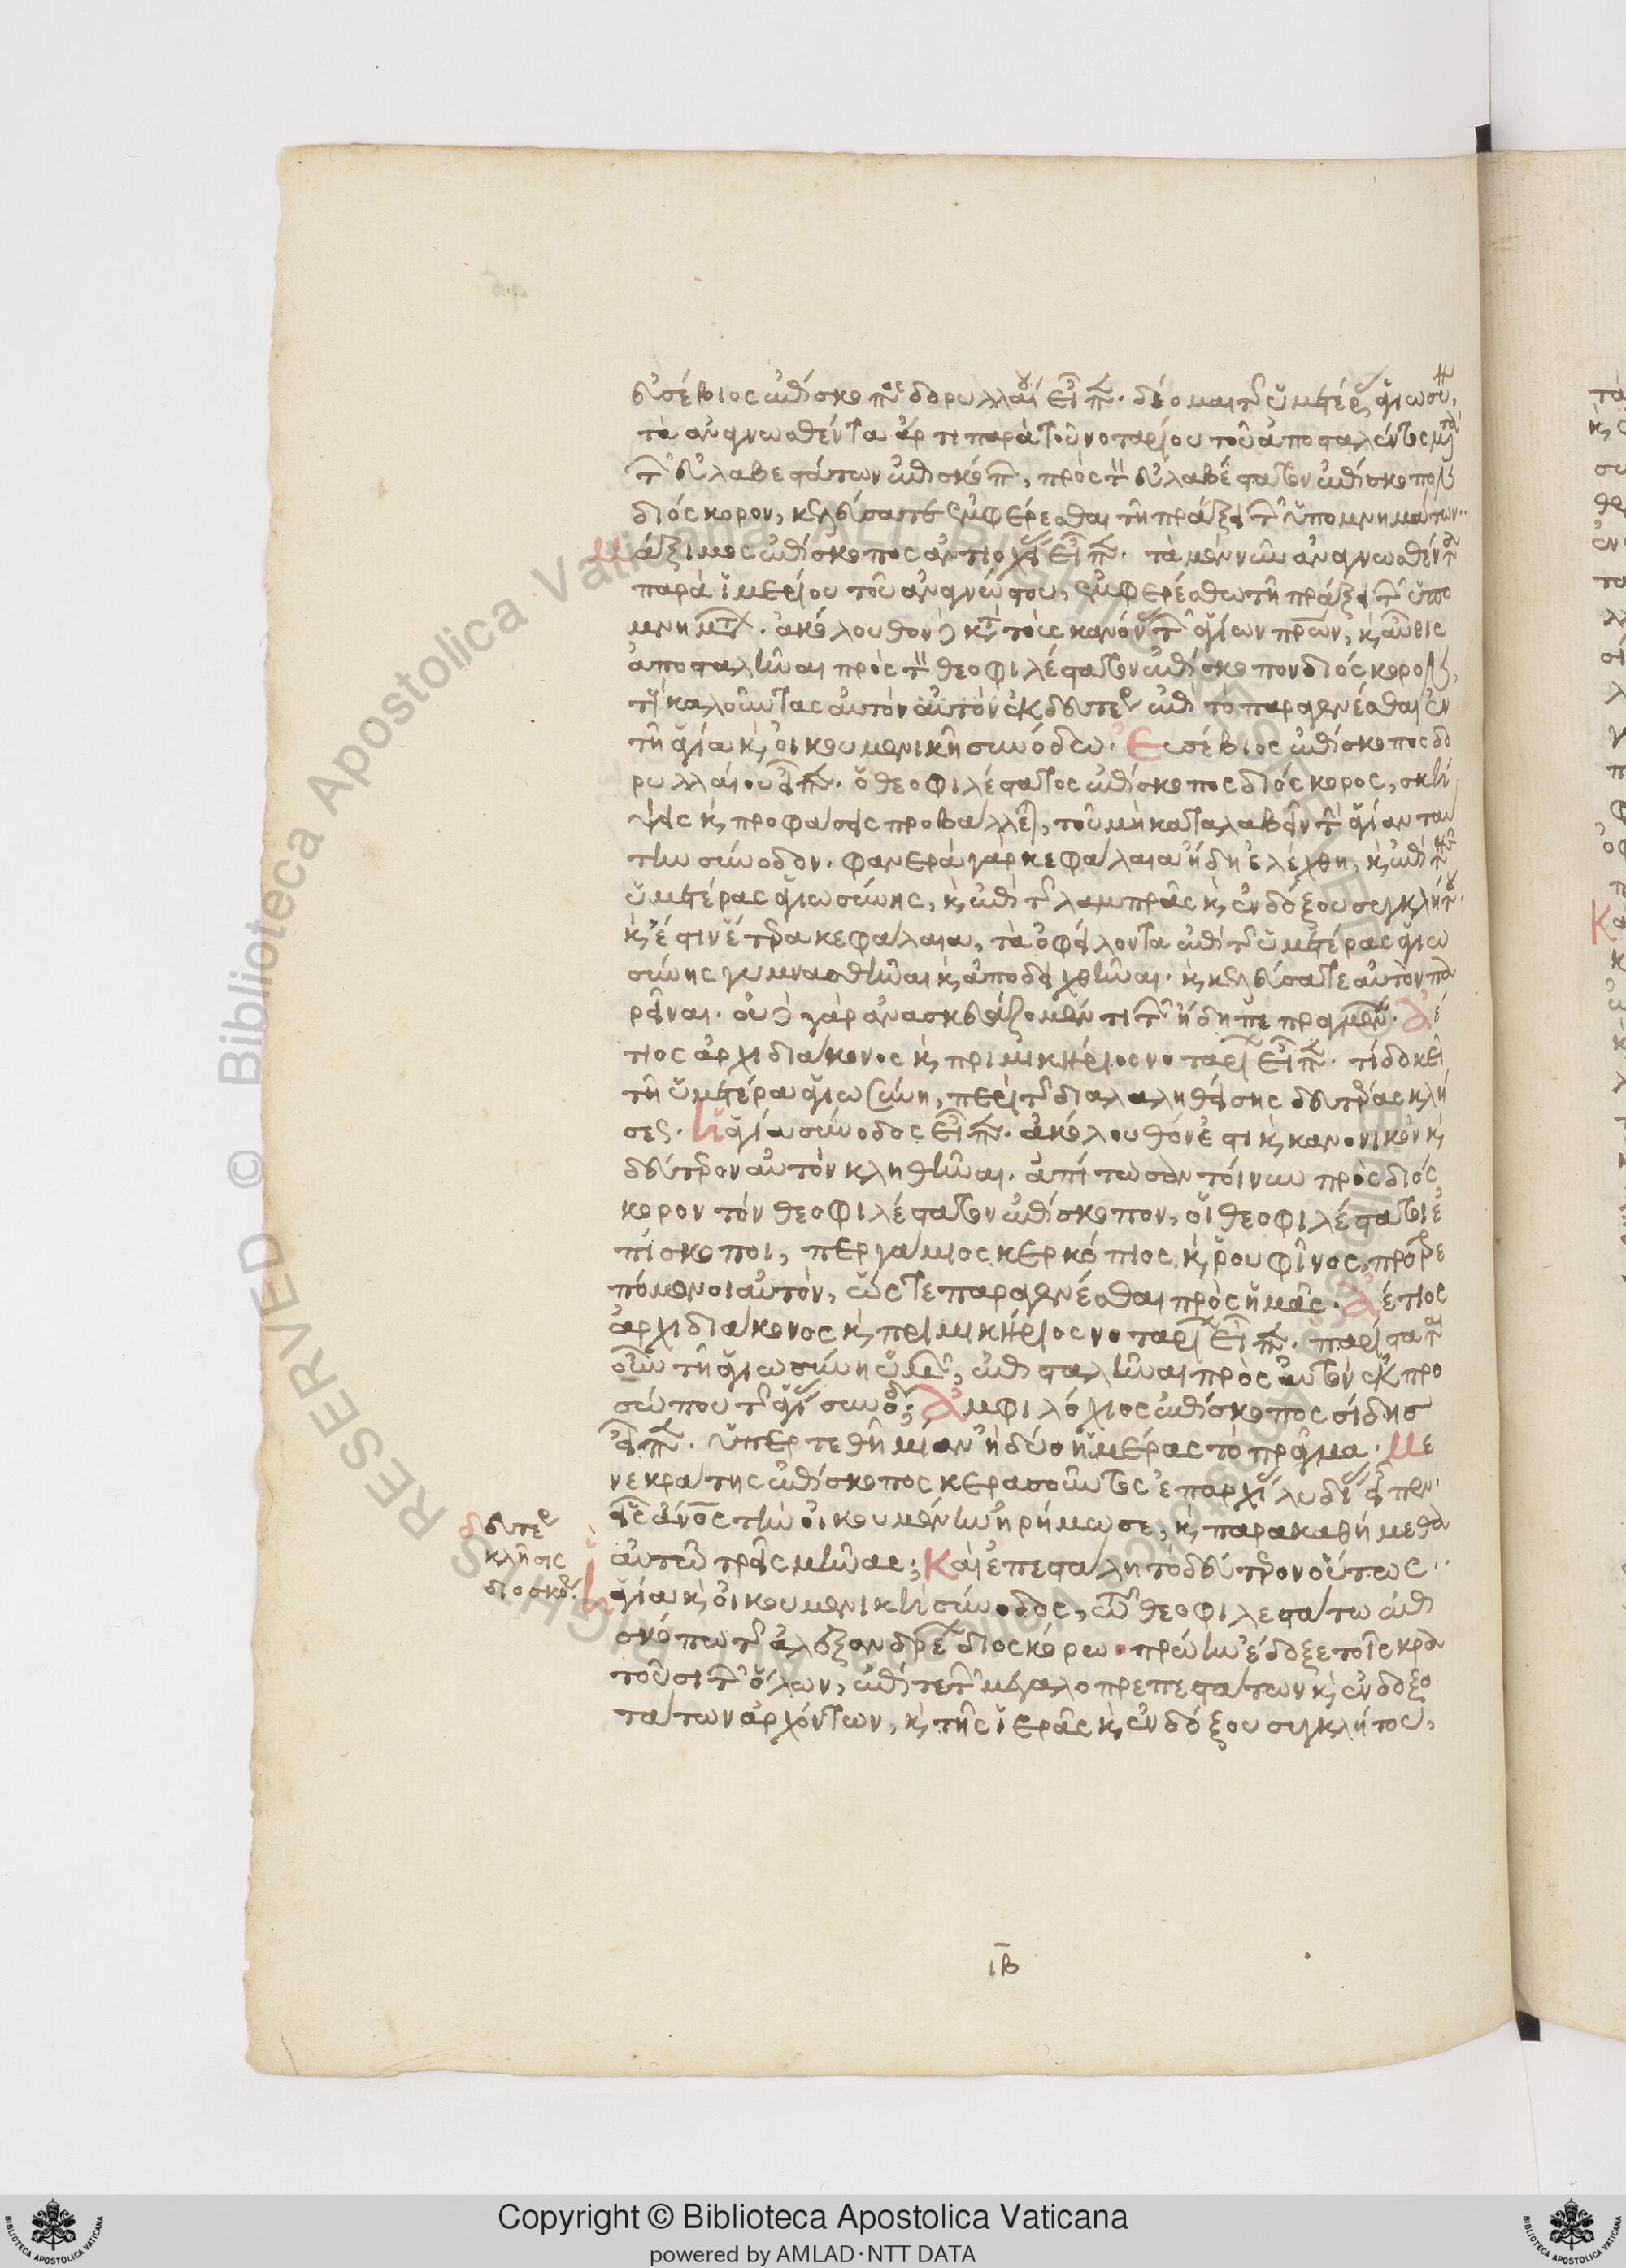 εὐσέβιος ἐπίσκοπος δορυλλαίου εἶπεν· δέομαι τῆς ὑμετέρας ἁγιωσύνης,
τὰ ἀναγνωσθέντα ἄρτι παρὰ τοῦ νοταρίου τοῦ ἀποσταλέντος μετὰ
τῶν εὐλαβεστάτων ἐπισκόπων, πρὸς τὸν εὐλαβέστατον ἐπίσκοπον
διόσκορον, κελεύσατε ἐμφέρεσθαι τῇ πράξει τῶν ὑπομνημάτων··
Μάξιμος ἐπίσκοπος ἀντιοχείας εἶπεν· τὰ μὲν νῦν ἀναγνωσθέντα
παρὰ ἱμερίου τοῦ ἀναγνώστου, ἐμφερέσθω τῇ πράξει τῶν ὑπο
μνημάτων· ἀκόλουθον δὲ κατὰ τοὺς κανόνας τῶν ἁγίων πρων, κ αὖθις
ἀποσταλῆναι πρὸς τὸν θεοφιλέστατον ἐπίσκοπον διόσκορον,
τοὺς καλοῦντας αὐτὸν αὐτὸν ἐκ δευτέρου ἐπὶ τὸ παραγενέσθαι ἐν
τῇ ἁγίᾳ κ οἰκουμενικῇ συνόδω· Εὐσέβιος ἐπίσκοπος δο
ρυλλαίου εἶπεν· ὁ θεοφιλέστατος ἐπίσκοπος διόσκορος, σκή
ψεις κ προφάσεις προβάλλεται, τοῦ μὴ καταλαβεῖν τὴν ἁγίαν ταύ
την σύνοδον· φανερὰ γὰρ κεφάλαια ἤδη ἐλέχθη, κ ἐπὶ τῆς
ὑμετέρας ἁγιωσύνης, κ ἐπὶ τῆς λαμπρᾶς κ ἐνδόξου συγκλήτου·
κ ἔστιν ἕτερα κεφάλαια, τὰ ὀφείλοντα ἐπὶ τῆς ὑμετέρας ἁγιω
σύνης γυμνασθῆναι κ ἀποδειχθῆναι· κ κελεύσατε αὐτὸν πα
ρεῖναι· οὐδὲ γὰρ ἀνασκευάζομέν τι τῶν ἤδη πεπραγμένων· Ἀέ
τιος ἀρχιδιάκονος κ πριμικήριος νοταρίων εἶπεν· τί δοκεῖ
τῇ ὑμετέρα ἁγιωσύνη, περὶ τῆς διαλαληθείσης δευτέρας κλή
σεως· Ἡ ἁγία σύνοδος εἶπεν· ἀκόλουθόν ἐστι κ κανονικὸν κ
δεύτερον αὐτὸν κληθῆναι· ἀπίτωσαν τοίνυν πρὸς διόσ
κορον τὸν θεοφιλέστατον ἐπίσκοπον, οἱ θεοφιλέστατοι ἐ
πίσκοποι, περγάμιος κερκόπιος κ ρουφῖνος, προτρε
πόμενοι αὐτὸν, ὥστε παραγενέσθαι πρὸς ἡμᾶς· Ἀέτιος
ἀρχιδιάκονος κ πριμικήριος νοταρίων εἶπεν· παρίσταται
οὖν τῇ ἁγιωσύνη ὑμῶν, ἐπισταλῆναι πρὸς αὐτὸν ἐκ προ
σώπου τῆς ἁγίας συνόδου; Ἀμφιλόχιος ἐπίσκοπος σίδης
εἶπεν· ὑπερτεθῆ μίαν ἢ δύο ἡμέρας τὸ πρᾶγμα· Με
νεκράτης ἐπίσκοπος κερασοῦντος ἐπαρχίας λυδίας εἶπεν·
εἷς ἄνος τὴν οἰκουμένην ἠρήμωσε, κ παρακαθήμεθα
αὐτῶ τρεῖς μῆνας; Καὶ ἐπεστάλη τὸ δεύτερον οὕτως··
Ἡ ἁγία κ οἰκουμενικὴ σύνοδος, τῶ θεοφιλεστάτω ἐπι
σκόπω τῆς ἀλεξανδρέων διοσκόρω· πρώην ἔδοξε τοῖς κρα
τοῦσι τῶν ὅλων, ἐπί τε τῶν μεγαλοπρεπεστάτων κ ἐνδοξο
τάτων ἀρχόντων, κ τῆς ἱερᾶς κ ἐνδόξου συγκλήτου,
δευτέρα
κλῆσις
διοσκόρου
ιβ
RESERVED © Biblioteca Apostolica Vaticana
Copyright © Biblioteca Apostolica Vaticana
powered by AMLAD·NTT DATA